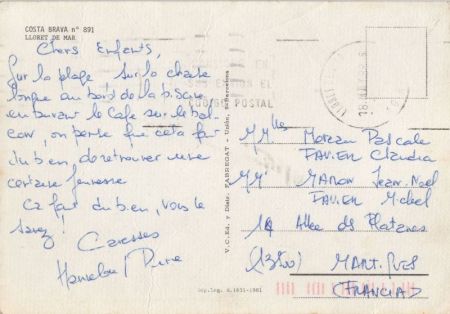 COSTA BRAVA nº 891
LLORET DE MAR
Chers Enfants,
Sur la plage, sur la chaise
longue au bord de la piscine
en buvant le café sur le bal
con, on pense que cela fait
du bien de retrouver une
certaine jeunesse
Ca fait du bien, vous le
savez!
Caresses
CODIGO POSTAL
V.C. Ed. y Distr. FABREGAT - Urdin, 8 - Barcelona
Mlles Morzan Pascale
FAVIER Claudia
MM MARON Jean-Noël
FAVIER Michel
14 Allee des Platanes
(13500) MARTIGUES
(FRANCIA)
Dep. Leg. B. 1831-1981